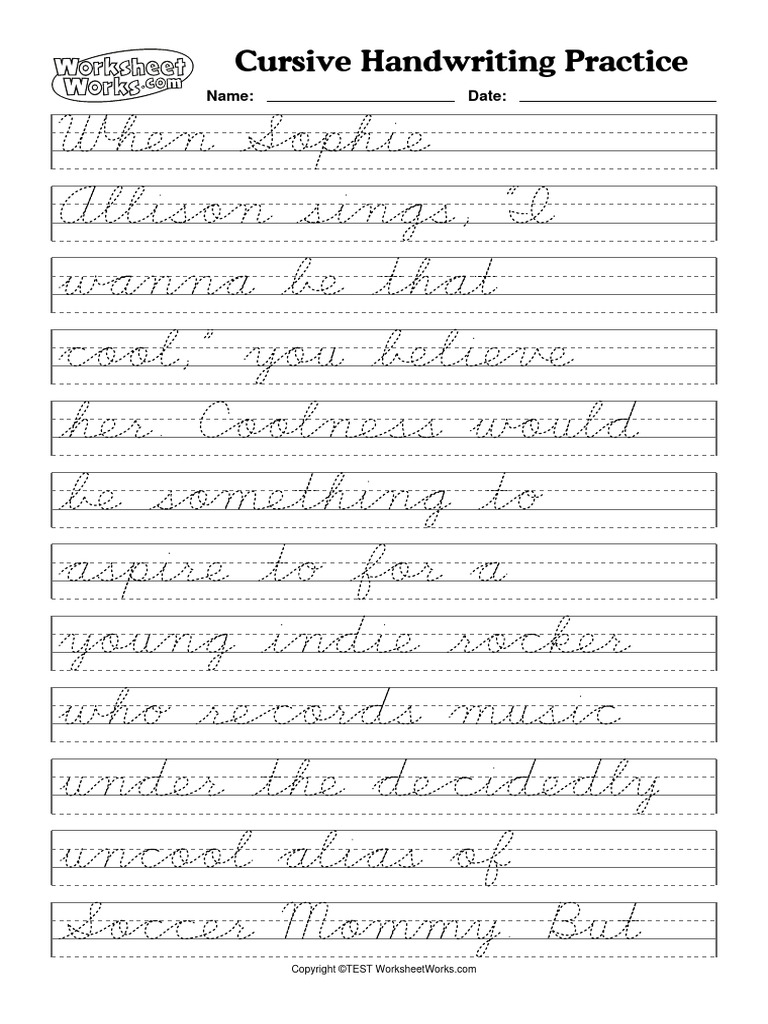 Worksheet
Works.com
Cursive Handwriting Practice
Name: Date:
When Sophie
Allison sings, "I
wanna be that
cool," you believe
her. Coolness would
be something to
aspire to for a
young indie rocker
who records music
under the decidedly
uncool alias of
Soccer Mommy. But
Copyright ©TEST WorksheetWorks.com